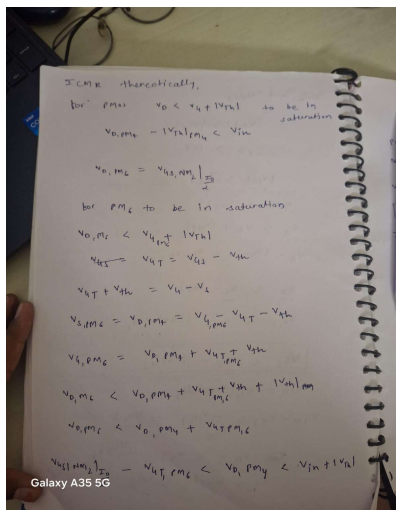 ICMR thereotically,
for pmos V_D < V_G + |V_Th| to be in
saturation
V_D,PM4 - |V_Th|_PM4 < Vin
V_D,M6 = V_GS,NM2|_I0/2
for PM6 to be in saturation
V_D,M6 < V_G,PM6 + |V_Th|
V_GS = V_GT = V_GS - V_th
V_GT + V_th = V_G - V_S
V_S,PM6 = V_D,PM4 = V_G,PM6 - V_GT - V_th
V_G,PM6 = V_D,PM4 + V_GT,PM6 + V_th
V_D,M6 < V_D,PM4 + V_GT,PM6 + V_th + |V_th|_PM
V_D,PM6 < V_D,PM4 + V_GT,PM6
V_GS|NM2|_I0 - V_GT,PM6 < V_D,PM4 < Vin + |V_th|
Galaxy A35 5G